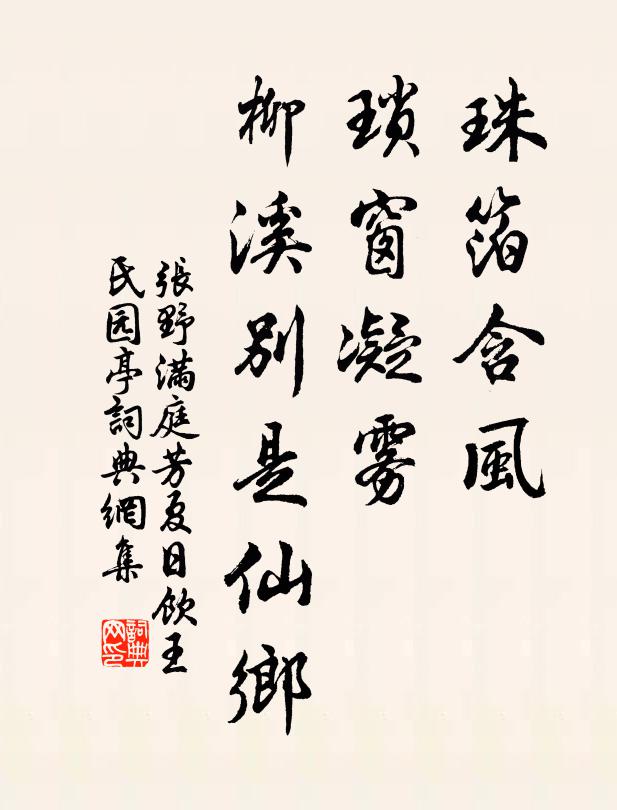 珠箔含風
瑣窗凝雾
柳溪別是仙鄉
張野满庭芳夏日飲王
民园亭詞典網集
詞典网印